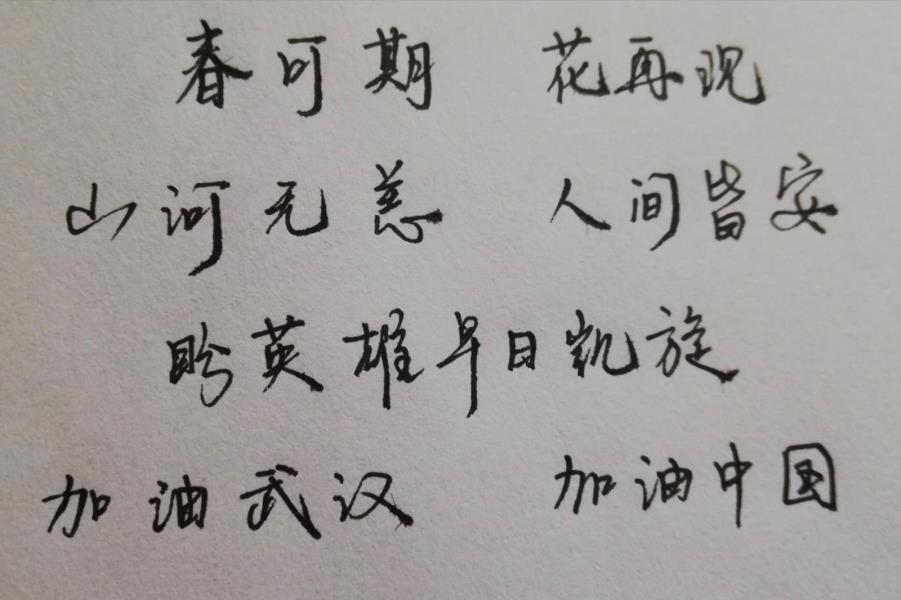 春可期 花再现
山河无恙 人间皆安
盼英雄早日凯旋
加油武汉 加油中国